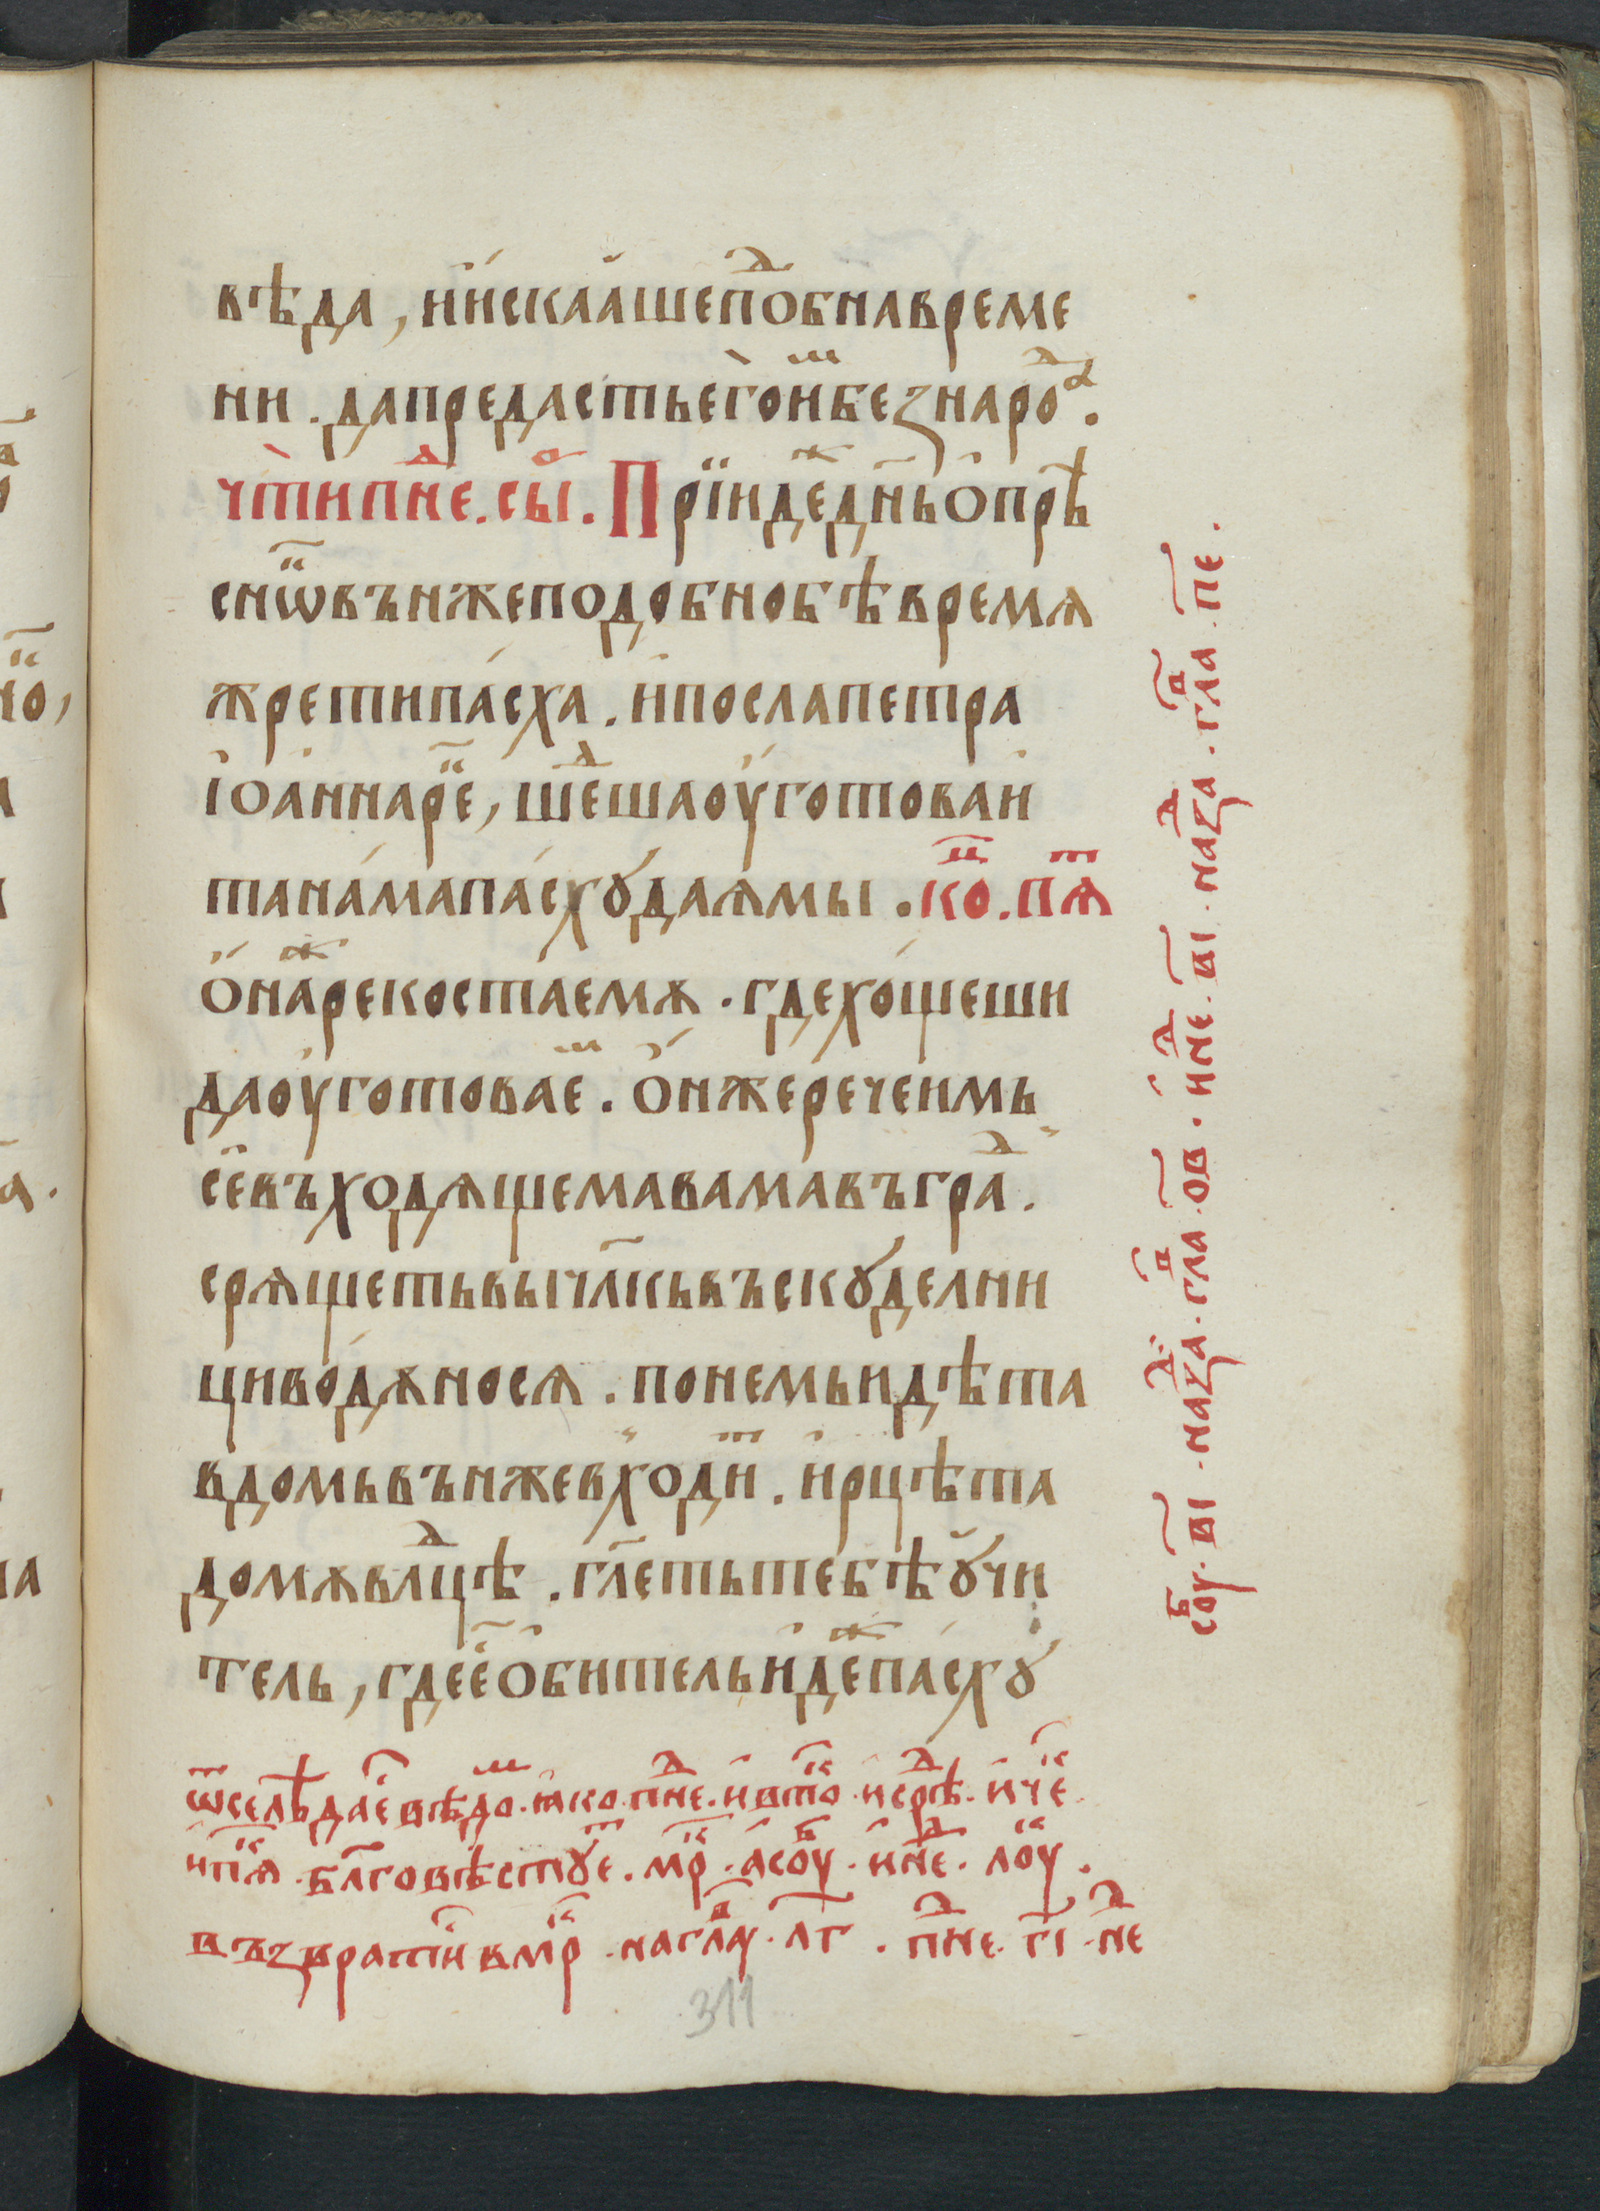 вѣда, и҆и҆скаа҆шепⷣобнавреме
ни . дапредастьего̀иⷨбезнароⷣа .
чт̀ипнⷣе . сыⷪ҇ . Прїидеⷤдн҃ьо҆прѣ
сниⷭ҇ѡвъньжеподобнобѣвремѧ
жретипа́сха . и҆послапетра
і҆оа҆ннареⷱ҇, шеⷣшаоу҆готоваи҆
тана́мапа́схꙋдаꙗмы . коⷰ҇ . пѧⷮ
о҆наⷤрекоста́емѫ . гдехо́щеши
даоу҆готоваеⷨ . о҆нжере́чеимь
сеⷭ҇въходѧщемавамавъграⷣ .
срѧщетьвычл҃кьвъскꙋделни
циво́дѫносѧ . понемьидѣта
вдомьвъньжевхо́диⷮ . и҆рцѣта
домѫвлⷣцѣ . гл҃етьтебѣꙋ҆чи
тель, гдееⷭ҇о҆битель҆и҆деⷤпа́схꙋ
ѿселѣдаеⷭ҇вѣдоⷨ . ꙗко . пнⷣе . и҆втоⷬ҇ . и҆срⷣѣ . и҆чеⷦ҇
и҆пѧⷦ҇ . бл҃говѣстꙋеⷮ . мрⷦ҇ . а҆соуⷠ . и҆неⷣ . лоуⷦ҇ .
възвратиⷭ҇вмрⷦ҇ . наглаⷡ҇у . л҃г . пнⷣе . г҃і . неⷣ
соуⷠ . в҃і . назаⷣ . глаⷡ҇ . о҃в . и҆неⷣ . в҃і . назаⷣ . глаⷡ҇ . п҃е .
311